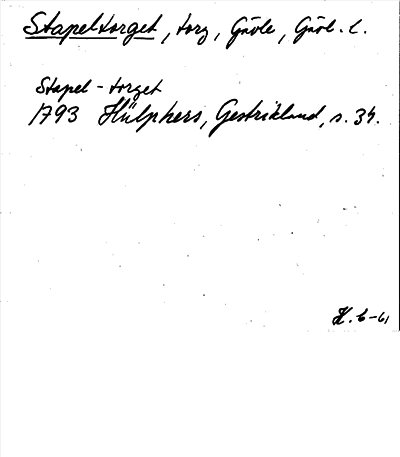 Stapeltorget, torg, Gävle, Gävl. l.
Stapel-torget
1793 Hülphers, Gestrikland, s. 34.